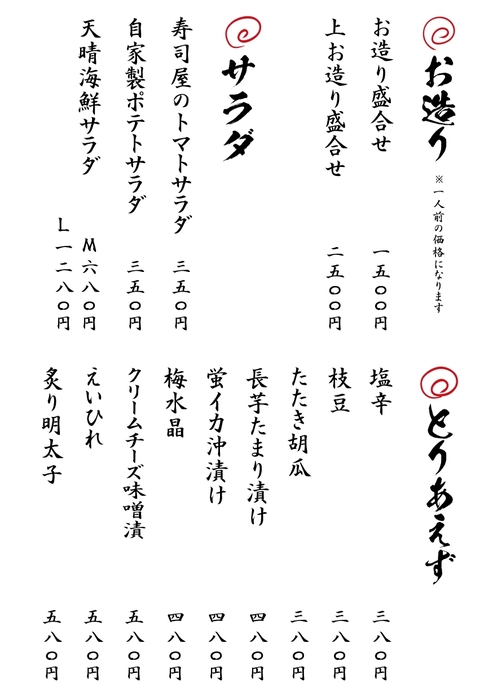 お造り
※一人前の価格になります
お造り盛合せ 一五〇〇円
上お造り盛合せ 二五〇〇円
サラダ
寿司屋のトマトサラダ 三五〇円
自家製ポテトサラダ 三五〇円
天晴海鮮サラダ M六八〇円
L一二八〇円
とりあえず
塩辛 三八〇円
枝豆 三八〇円
たたき胡瓜 三八〇円
長芋たまり漬け 四八〇円
蛍イカ沖漬け 四八〇円
梅水晶 四八〇円
クリームチーズ味噌漬 五八〇円
えいひれ 五八〇円
炙り明太子 五八〇円